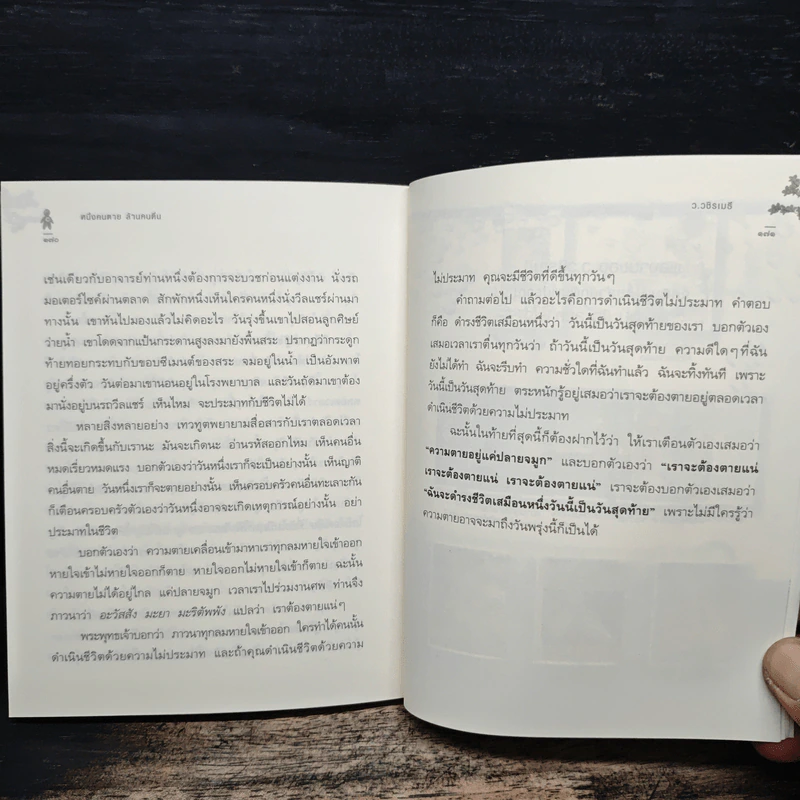 หนึ่งคนตาย ล้านคนตื่น
๑๗๐
เช่นเดียวกับอาจารย์ท่านหนึ่งต้องการจะบวชก่อนแต่งงาน นั่งรถ
มอเตอร์ไซค์ผ่านตลาด สักพักหนึ่งเห็นใครคนหนึ่งนั่งวีลแชร์ผ่านมา
ทางนั้น เขาหันไปมองแล้วไม่คิดอะไร วันรุ่งขึ้นเขาไปสอนลูกศิษย์
ว่ายน้ำ เขาโดดจากแป้นกระดานสูงลงมายังพื้นสระ ปรากฏว่ากระดูก
ท้ายทอยกระทบกับขอบซีเมนต์ของสระ จมอยู่ในน้ำ เป็นอัมพาต
อยู่ครึ่งตัว วันต่อมาเขานอนอยู่ในโรงพยาบาล และวันถัดมาเขาต้อง
มานั่งอยู่บนรถวีลแชร์ เห็นไหม จะประมาทกับชีวิตไม่ได้
หลายสิ่งหลายอย่าง เทวทูตพยายามสื่อสารกับเราตลอดเวลา
สิ่งนี้จะเกิดขึ้นกับเรานะ มันจะเกิดนะ อ่านรหัสออกไหม เห็นคนอื่น
หมดเรี่ยวหมดแรง บอกตัวเองว่าวันหนึ่งเราก็จะเป็นอย่างนั้น เห็นญาติ
คนอื่นตาย วันหนึ่งเราก็จะตายอย่างนั้น เห็นครอบครัวคนอื่นทะเลาะกัน
ก็เตือนครอบครัวตัวเองว่าวันหนึ่งอาจจะเกิดเหตุการณ์อย่างนั้น อย่า
ประมาทในชีวิต
บอกตัวเองว่า ความตายเคลื่อนเข้ามาหาเราทุกลมหายใจเข้าออก
หายใจเข้าไม่หายใจออกก็ตาย หายใจออกไม่หายใจเข้าก็ตาย ฉะนั้น
ความตายไม่ได้อยู่ไกล แค่ปลายจมูก เวลาเราไปร่วมงานศพ ท่านจึง
ภาวนาว่า อะวัสสัง มะยา มะริตัพพัง แปลว่า เราต้องตายแน่ๆ
พระพุทธเจ้าบอกว่า ภาวนาทุกลมหายใจเข้าออก ใครทำได้คนนั้น
ดำเนินชีวิตด้วยความไม่ประมาท และถ้าคุณดำเนินชีวิตด้วยความ
ว.วชิรเมธี
๑๗๑
ไม่ประมาท คุณจะมีชีวิตที่ดีขึ้นทุกวันๆ
คำถามต่อไป แล้วอะไรคือการดำเนินชีวิตไม่ประมาท คำตอบ
ก็คือ ดำรงชีวิตเสมือนหนึ่งว่า วันนี้เป็นวันสุดท้ายของเรา บอกตัวเอง
เสมอเวลาเราตื่นทุกวันว่า ถ้าวันนี้เป็นวันสุดท้าย ความดีใดๆที่ฉัน
ยังไม่ได้ทำ ฉันจะรีบทำ ความชั่วใดที่ฉันทำแล้ว ฉันจะทิ้งทันที เพราะ
วันนี้เป็นวันสุดท้าย ตระหนักรู้อยู่เสมอว่าเราจะต้องตายอยู่ตลอดเวลา
ดำเนินชีวิตด้วยความไม่ประมาท
ฉะนั้นในท้ายที่สุดนี้ก็ต้องฝากไว้ว่า ให้เราเตือนตัวเองเสมอว่า
“ความตายอยู่แค่ปลายจมูก” และบอกตัวเองว่า “เราจะต้องตายแน่
เราจะต้องตายแน่ เราจะต้องตายแน่” เราจะต้องบอกตัวเองเสมอว่า
“ฉันจะดำรงชีวิตเสมือนหนึ่งวันนี้เป็นวันสุดท้าย” เพราะไม่มีใครรู้ว่า
ความตายอาจจะมาถึงวันพรุ่งนี้ก็เป็นได้